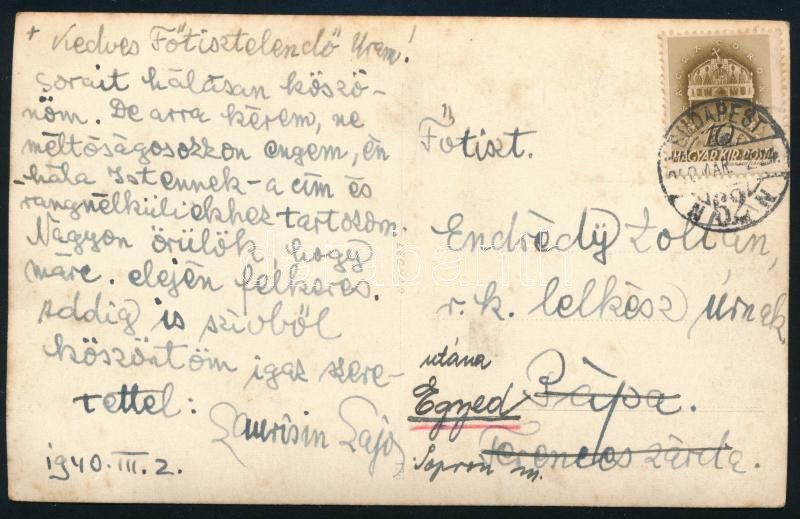 + Kedves Főtisztelendő Uram!
sorait hálásan köszö-
nöm. De arra kérem, ne
méltóságosozzon engem, én
- hála Istennek - a cím és
rangnélküliekhez tartozom.
Nagyon örülök, hogy
márc. elején felkeres.
Addig is szívből
köszöntöm igaz szere-
tettel:
Laurisin Lajos
1940. III. 2.
Főtiszt.
Endrédÿ Zoltán,
r. k. lelkész úrnak
utána
Pápa.
Egyed
Ferences zárda.
Sopron m.
MAGYAR KIR. POSTA
10
BUDAPEST
darabanth